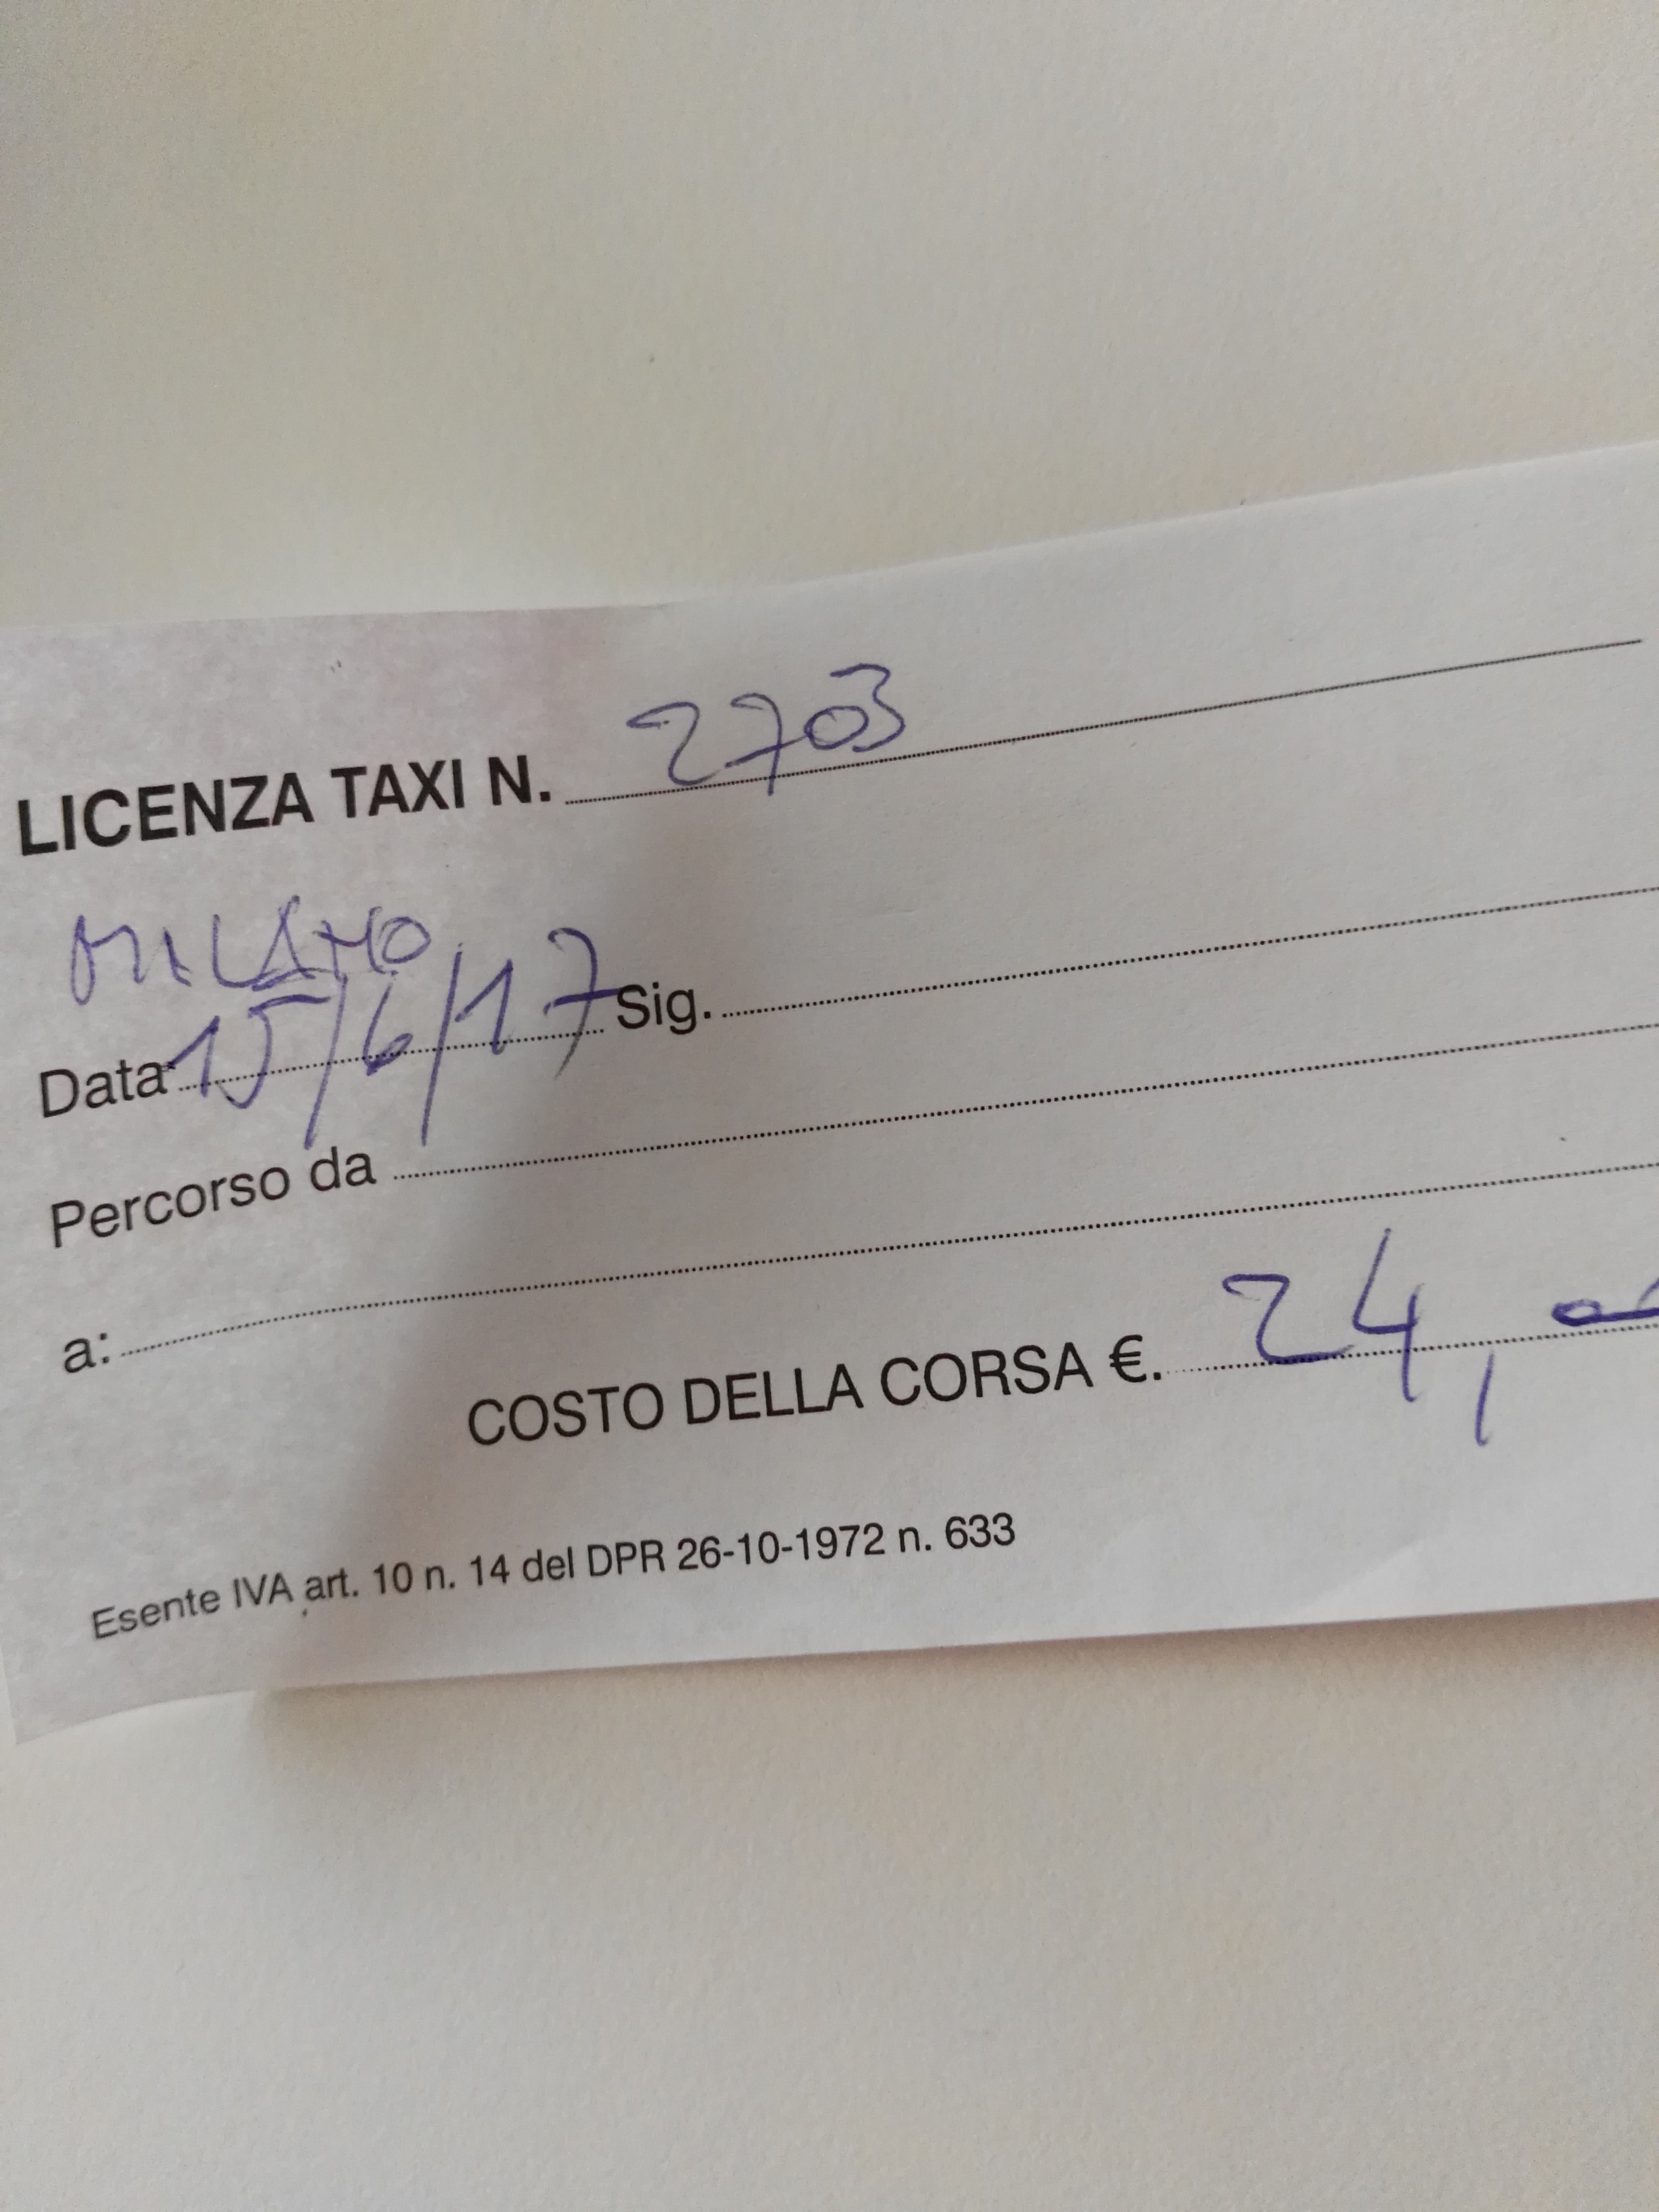 LICENZA TAXI N. 2703
MILANO
Data 15/6/17 Sig.
Percorso da
a:
COSTO DELLA CORSA €. 24,
Esente IVA art. 10 n. 14 del DPR 26-10-1972 n. 633